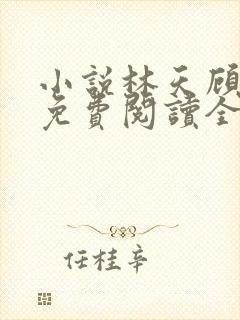 小説林天顧
免費閱讀全
任桂辛